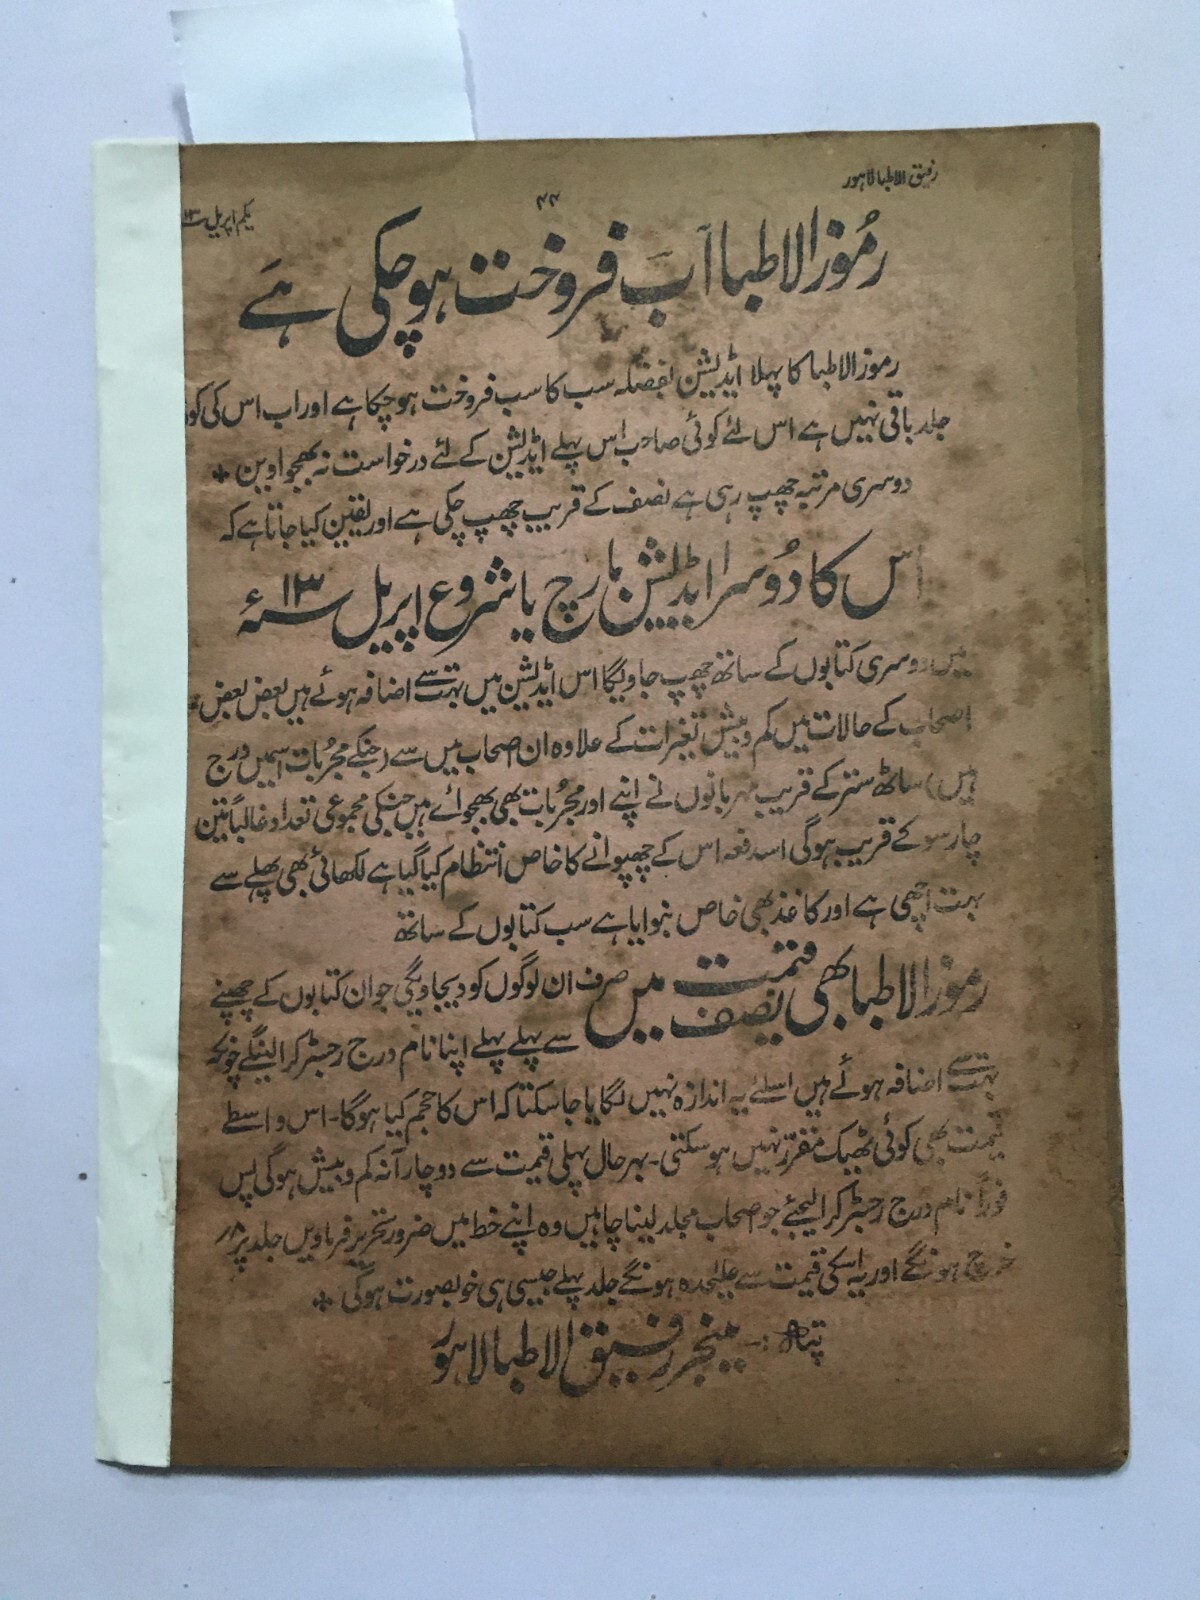 رفیق الاطبا لاہور
۴۴
یکم اپریل ۱۳ء
رُموز الاطبا اَب فروخت ہو چکی ہے
رموز الاطبا کا پہلا ایڈیشن بفضلہ سب کا سب فروخت ہو چکا ہے اور اب اس کی کوئی
جلد باقی نہیں ہے اس لئے کوئی صاحب اس پہلے ایڈیشن کے لئے درخواست نہ بھجواویں
دوسری مرتبہ چھپ رہی ہے نصف کے قریب چھپ چکی ہے اور یقین کیا جاتا ہے کہ
اس کا دُوسرا ایڈیشن مارچ یا شروع اپریل ۱۳ء
میں دوسری کتابوں کے ساتھ چھپ جاویگا اس ایڈیشن میں بہت سے اضافہ ہوئے ہیں بعض بعض
اصحاب کے حالات میں کم وبیش تغیرات کے علاوہ ان اصحاب میں سے (جنکے مجربات اسمیں درج
ہیں) ساٹھ ستر کے قریب مہربانوں نے اپنے اور مجربات بھی بھجوائے ہیں جنکی مجموعی تعداد غالباً تین
چار سو کے قریب ہوگی اسدفعہ اس کے چھپوانے کا خاص انتظام کیا گیا ہے لکھائی بھی پہلے سے
بہت اچھی ہے اور کاغذ بھی خاص بنوایا ہے سب کتابوں کے ساتھ
رموز الاطبا بھی نصف قیمت میں صرف ان لوگوں کو دیجاویگی جو ان کتابوں کے چھپنے
سے پہلے پہلے اپنا نام درج رجسٹر کرالینگے چونکہ
بہت سے اضافہ ہوئے ہیں اسلئے یہ اندازہ نہیں لگایا جا سکتا کہ اس کا حجم کیا ہوگا۔ اس واسطے
قیمت بھی کوئی ٹھیک مقرر نہیں ہو سکتی۔ بہر حال پہلی قیمت سے دو چار آنہ کم وبیش ہوگی پس
فوراً نام درج رجسٹر کرالیجئے جو اصحاب مجلد لینا چاہیں وہ اپنے خط میں ضرور تحریر فرماویں جلد پر ۸؍
خرچ ہونگے اور یہ اسکی قیمت سے علیحدہ ہونگے جلد پہلے جیسی ہی خوبصورت ہوگی
پتہ :۔ مینجر رفیق الاطبا لاہور